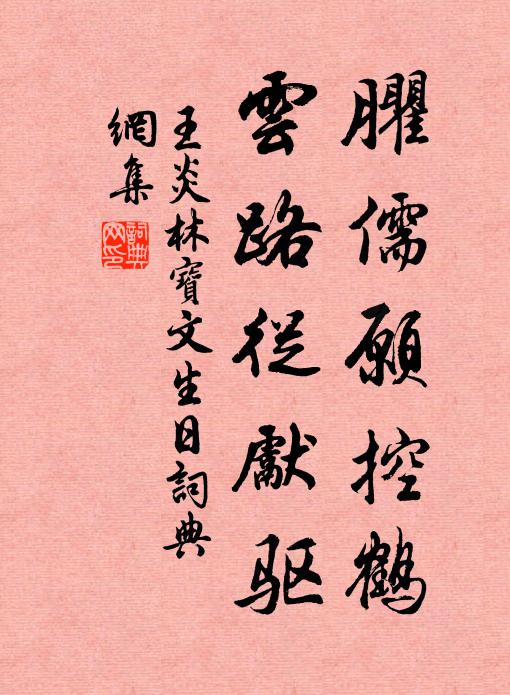 臞儒願控鶴
雲路從獻驱
王炎林寶文生日詞典
網集
詞典
网印